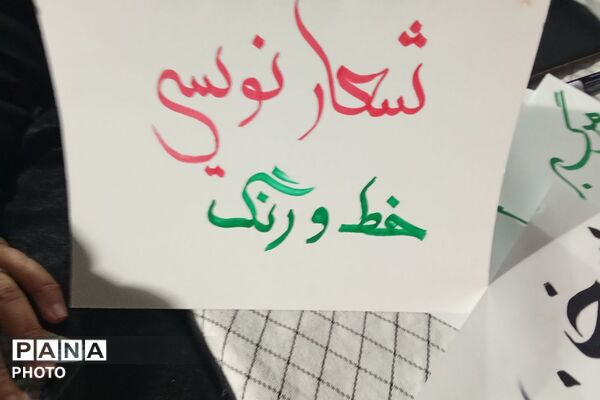 شعار نویسی
خط و رنگ
PANA
PHOTO